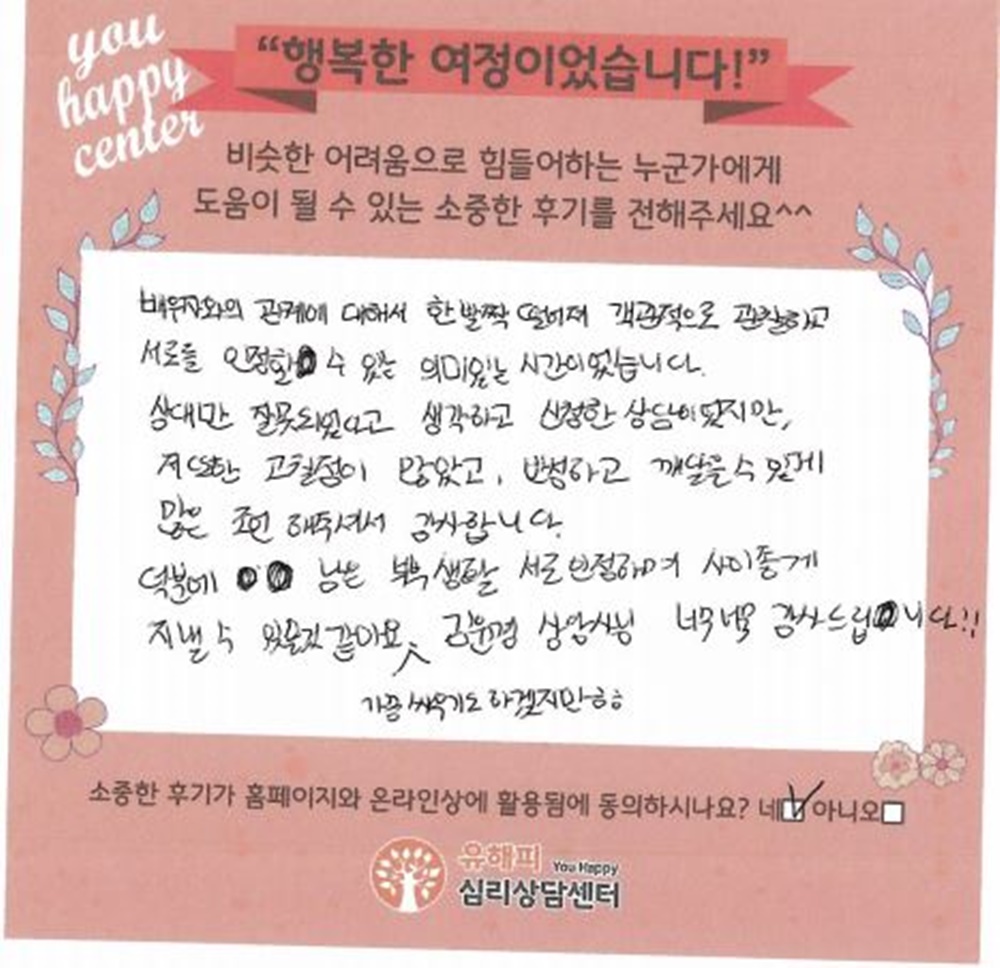 you
happy
center
“행복한 여정이었습니다!”
비슷한 어려움으로 힘들어하는 누군가에게
도움이 될 수 있는 소중한 후기를 전해주세요^^
배우자와의 관계에 대해서 한발짝 떨어져 객관적으로 관찰하고
서로를 인정할 수 있는 의미있는 시간이었습니다.
상대만 잘못되었다고 생각하고 신청한 상담이었지만,
저 또한 고칠점이 많았고, 반성하고 깨달을 수 있게
많은 조언 해주셔서 감사합니다.
덕분에 남은 부부생활 서로 인정하며 사이좋게
지낼 수 있을것 같아요 김윤경 상담사님 너무너무 감사드립니다!!
가끔 싸우기도 하겠지만ㅎㅎ
소중한 후기가 홈페이지와 온라인상에 활용됨에 동의하시나요? 네 아니오
유해피 You Happy
심리상담센터